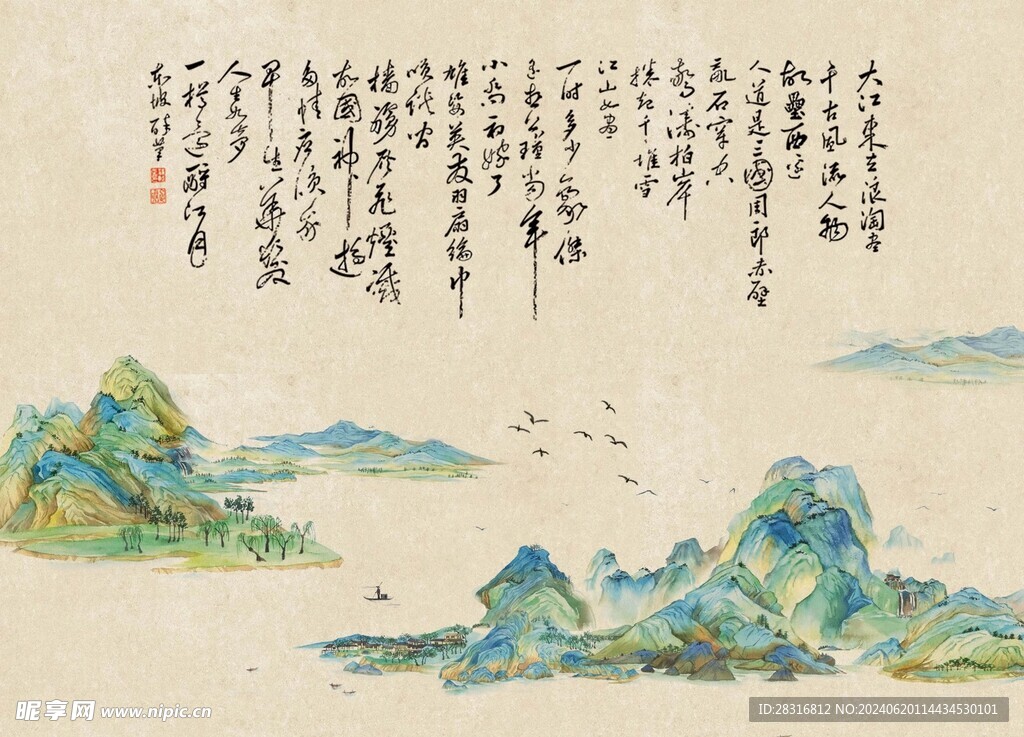 大江東去浪淘盡
千古風流人物
故壘西邊
人道是三國周郎赤壁
亂石穿空
驚濤拍岸
捲起千堆雪
江山如畫
一時多少豪傑
遙想公瑾當年
小喬初嫁了
雄姿英發羽扇綸巾
笑談間
檣艣灰飛煙滅
故國神遊
多情應我
早生華髮
人生如夢
一樽還酹江月
東坡醉筆
昵享网 www.nipic.cn
ID:28316812 NO:20240620114434530101